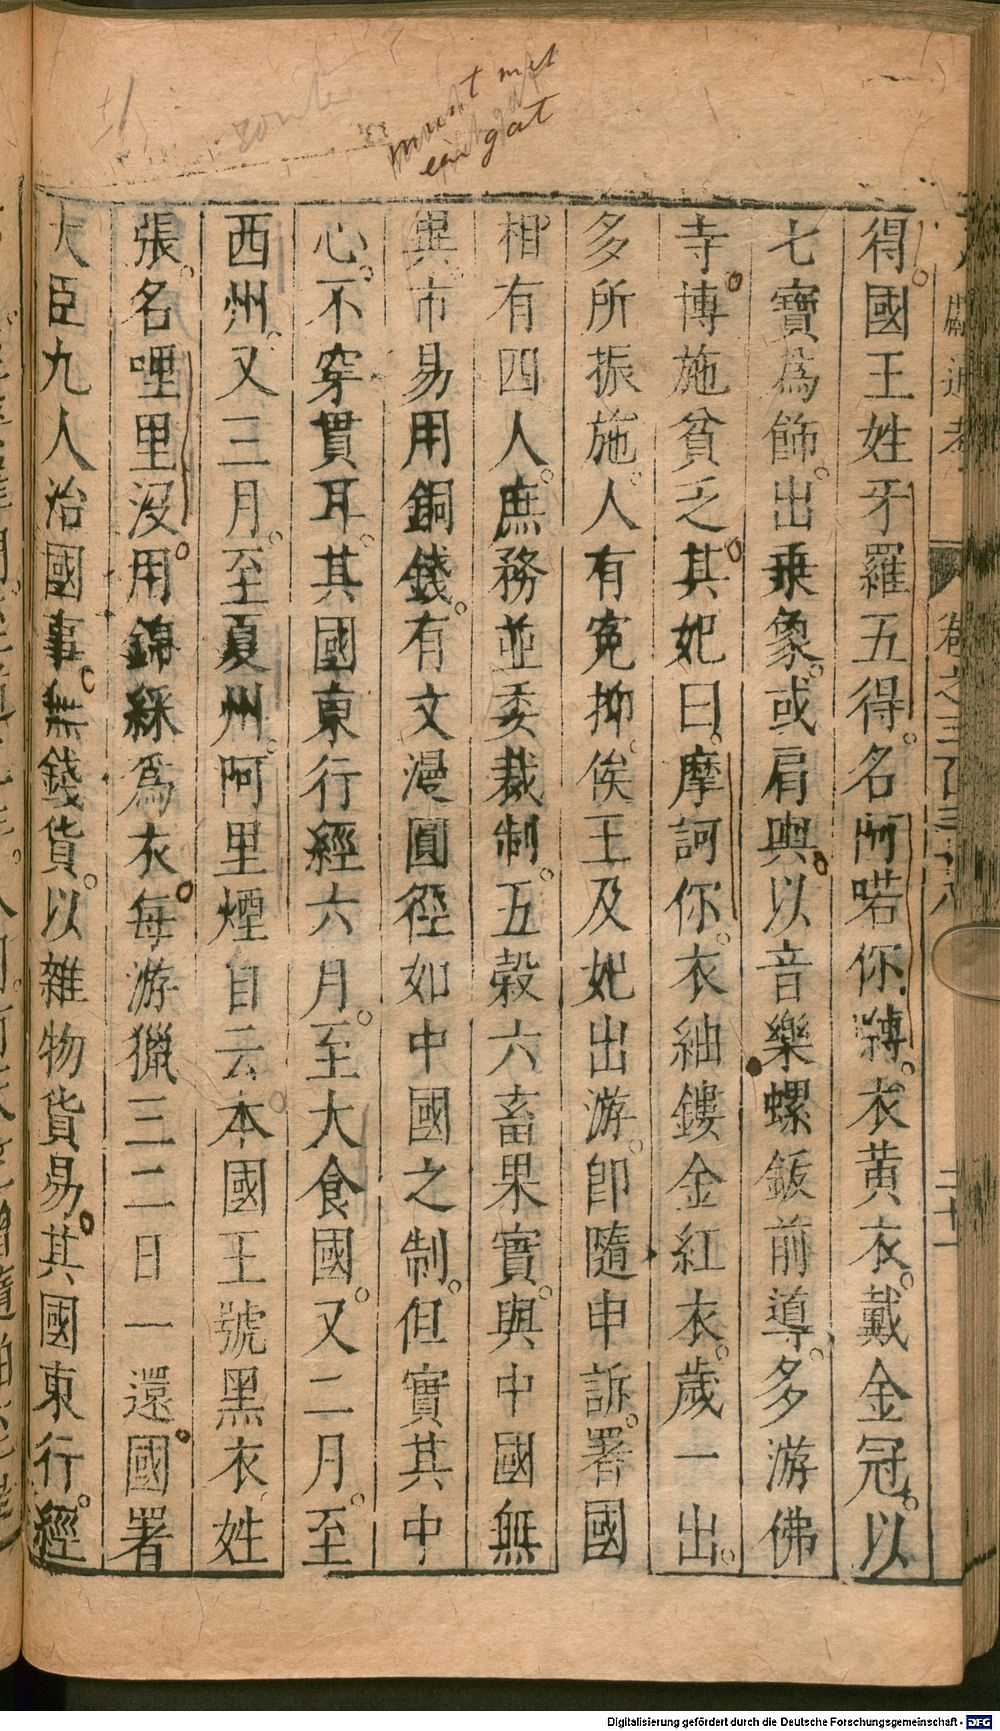 得國王姓牙羅五得名阿喏你縛衣黃衣戴金冠以
七寶為飾出乗象或肩輿以音樂螺鈸前導多游佛
寺博施貧乏其妃曰摩訶你衣紬鏤金紅衣歲一出
多所振施人有寃抑俟王及妃出游卽隨申訴署國
相有四人庶務並委裁制五榖六畜果實與中國無
異市易用銅錢有文漫圓徑如中國之制但實其中
心不穿貫耳其國東行經六月至大食國又二月至
西州又三月至夏州阿里煙自云本國王號黑衣姓
張名哩里沒用錦綵為衣每游獵三二日一還國署
大臣九人治國事無錢貨以雜物貨易其國東行經
卷之三百三十八
二十一
mit
gat
Digitalisierung gefördert durch die Deutsche Forschungsgemeinschaft - DFG